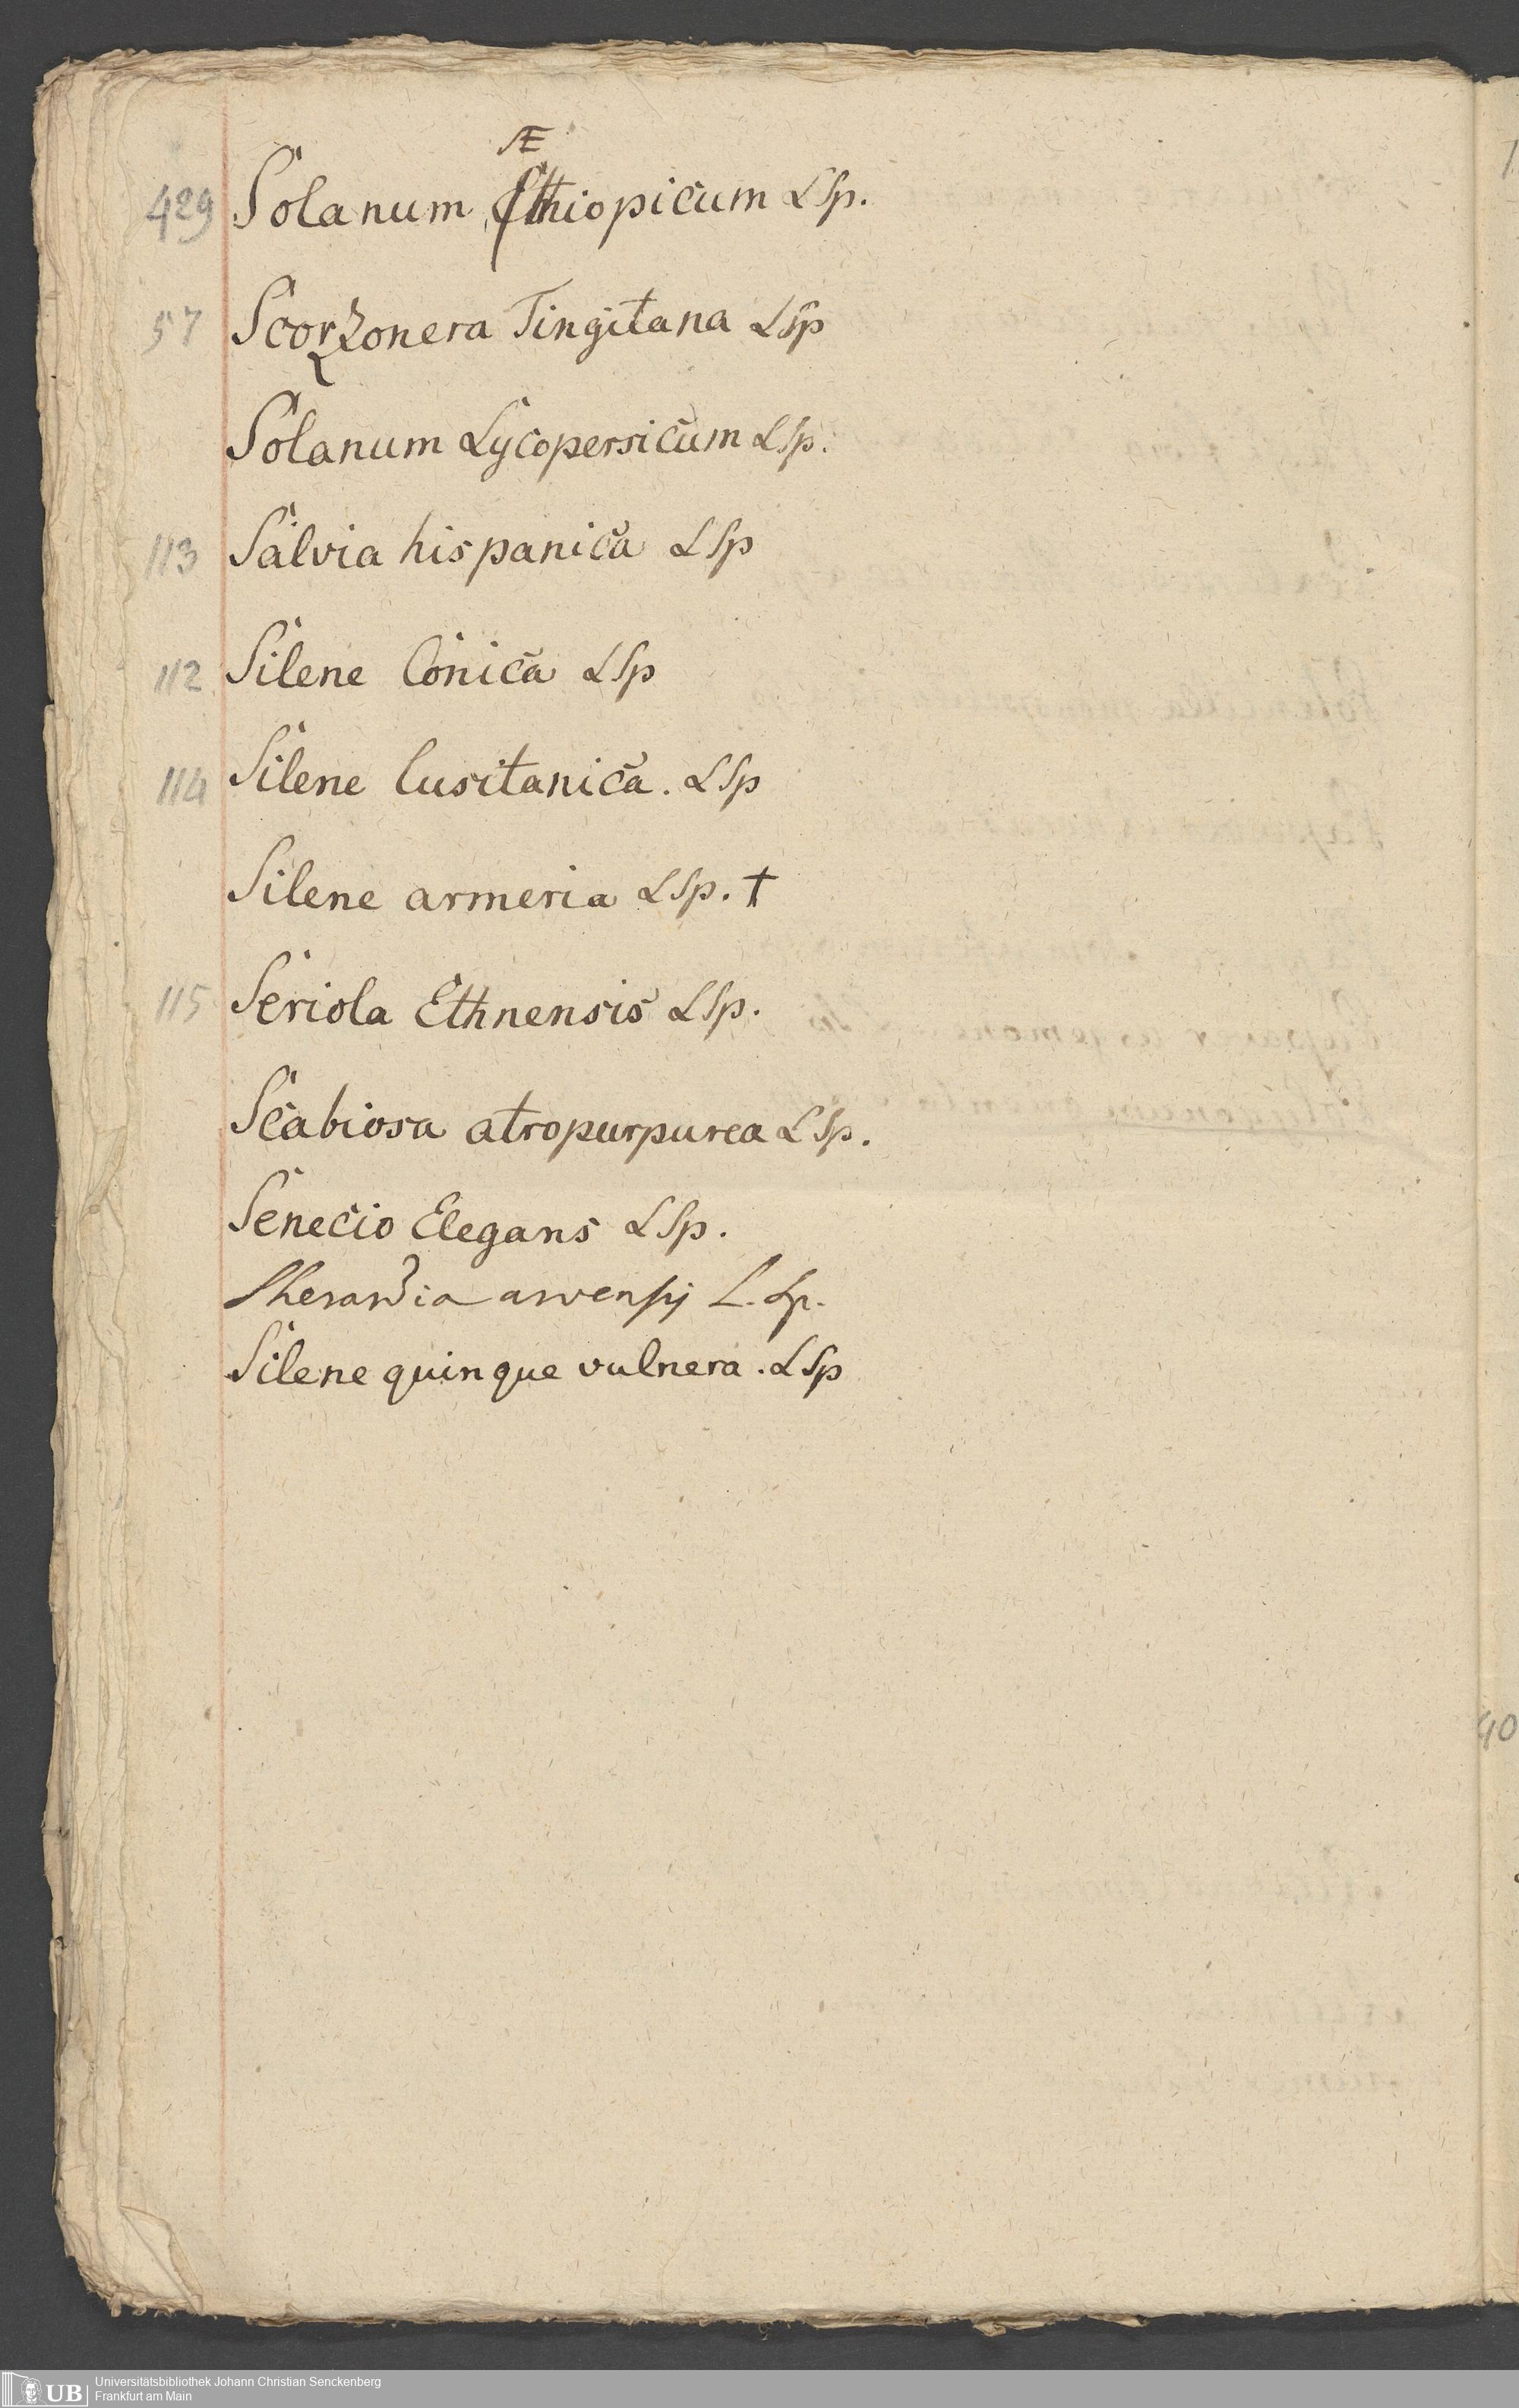 Æ
429 Solanum Ethiopicum LSp.
57 Scorzonera Tingitana LSp
Solanum Lycopersicum LSp.
113 Salvia hispanica LSp
112 Silene Conica LSp
114 Silene lusitanica. LSp
Silene armeria LSp. †
115 Seriola Ethnensis LSp.
Scabiosa atropurpurea LSp.
Senecio Elegans LSp.
Sherardia arvensis L. Sp.
Silene quinque vulnera. LSp
40
UB Universitätsbibliothek Johann Christian Senckenberg
Frankfurt am Main